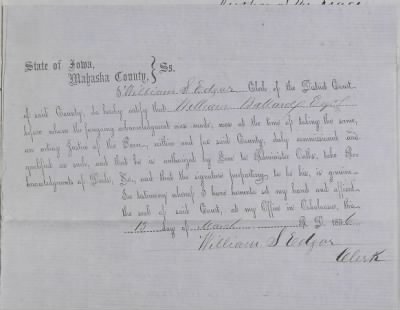 State of Iowa,
Mahaska County, } Ss.
I William S Edgar Clerk of the District Court
of said County, do hereby certify that William Esqr
before whom the foregoing acknowledgment was made, was at the time of taking the same,
an acting Justice of the Peace, within and for said County, duly commissioned and
qualified as such, and that he is authorized by Law to Administer Oaths, take Ac-
knowledgments of Deeds, &c, and that the signature purporting to be his, is genuine.
In testimony whereof I have hereunto set my hand and affixed
the seal of said Court, at my Office in Oskaloosa, this
13 day of March A. D. 1856
William S Edgar
Clerk